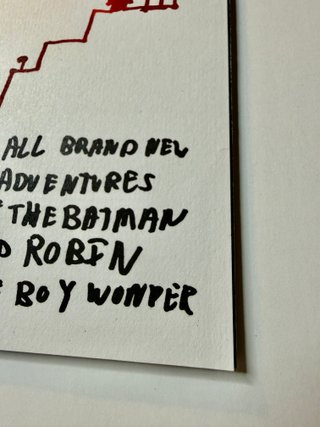 ALL BRAND NEW
ADVENTURES
THE BATMAN
ROBIN
BOY WONDER